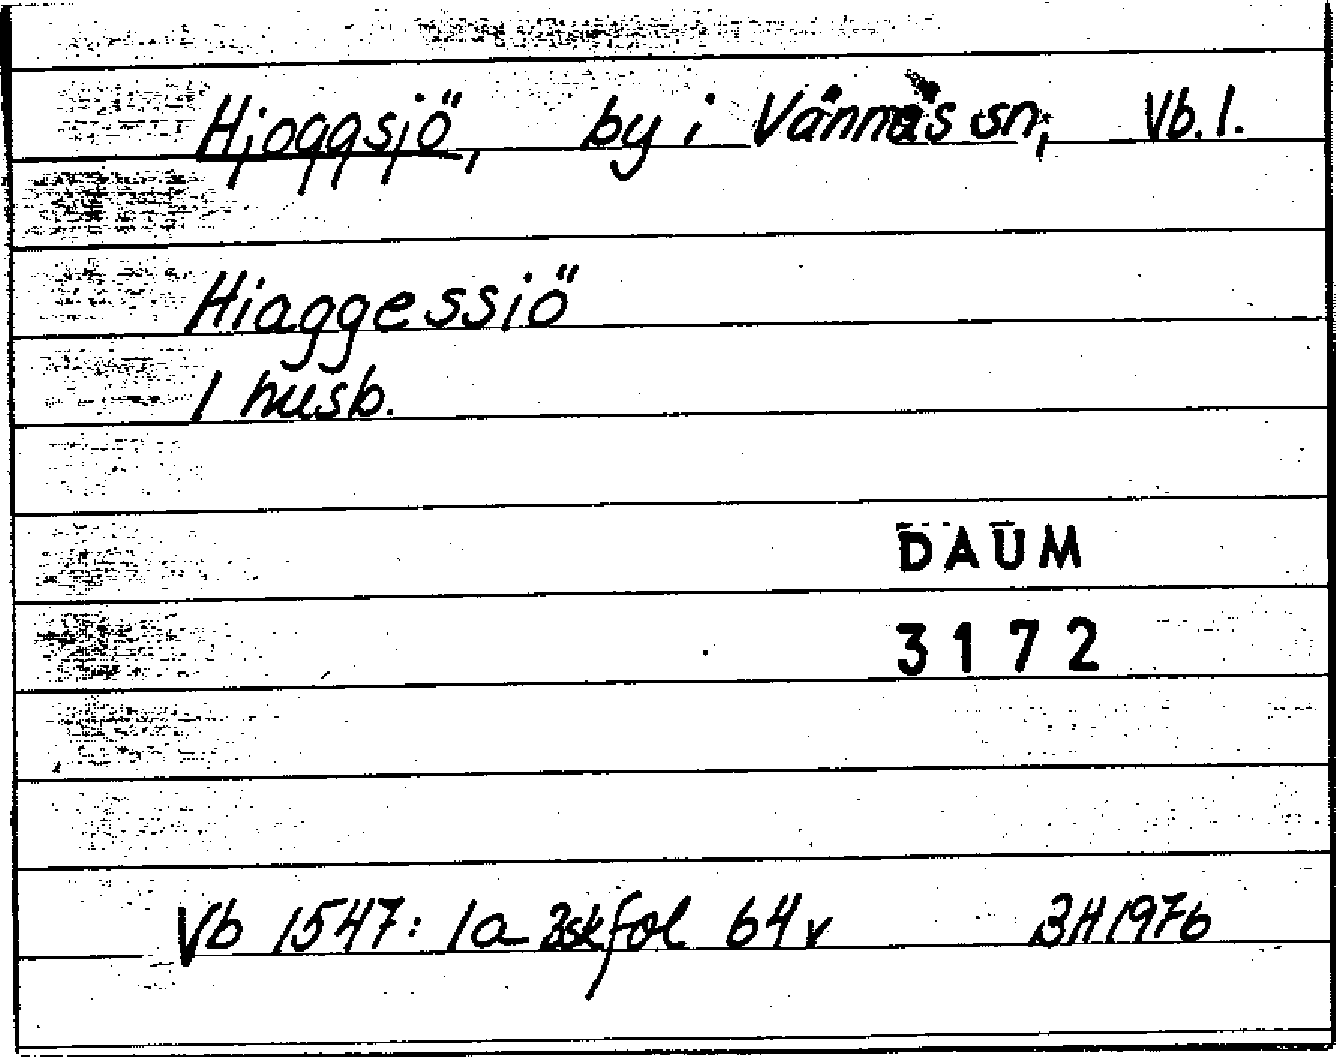 Hjoggsjö, by i Vännäs sn, Vb. l.
Hiaggessiö
1 husb.
DAUM
3172
Vb 1547: 1a Bsk fol 64v BH 1976